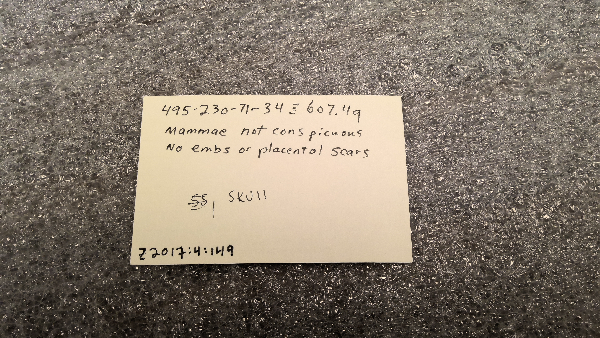 495-230-71-34 Ξ 607.4g
Mammae not conspicuous
No embs or placental scars
SS, Skull
Z2017:4:149